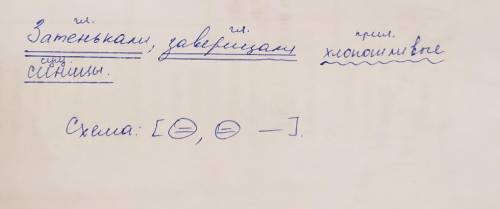 гл. гл. прил.
Затенькали, заверещали хлопотливые
сущ.
синицы.
Схема: [=, = —].